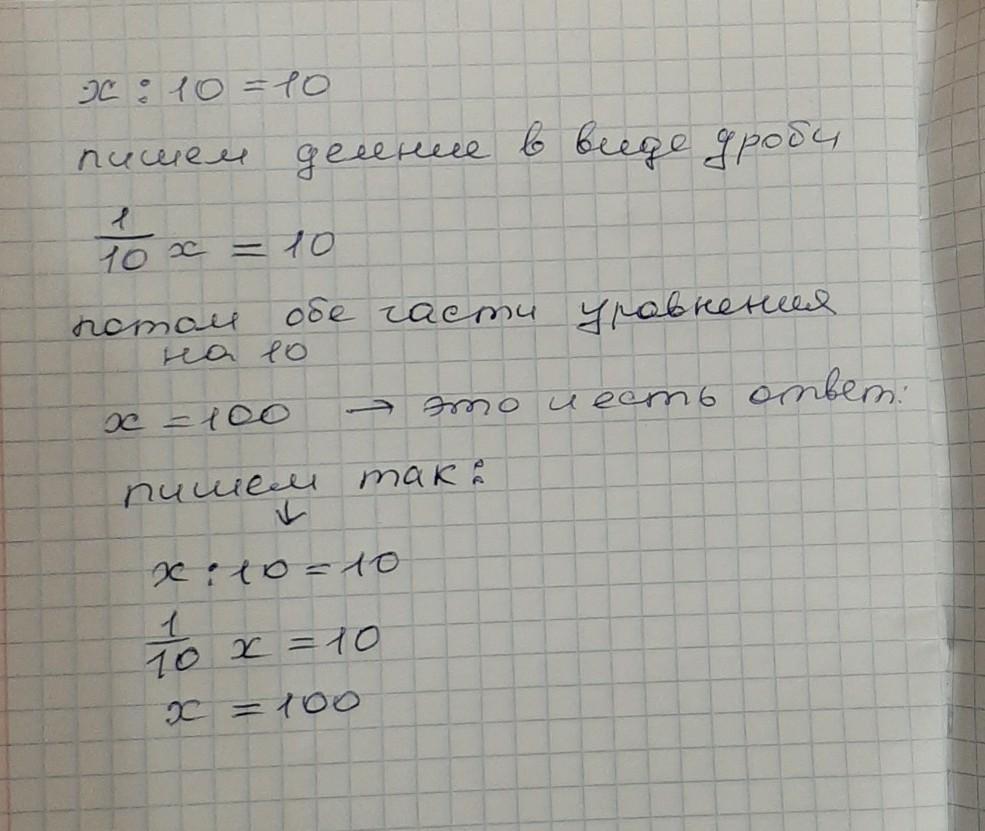 x : 10 = 10
пишем деление в виде дроби
1/10 x = 10
потом обе части уравнения
на 10
x = 100 → это и есть ответ:
пишем так:
↓
x : 10 = 10
1/10 x = 10
x = 100